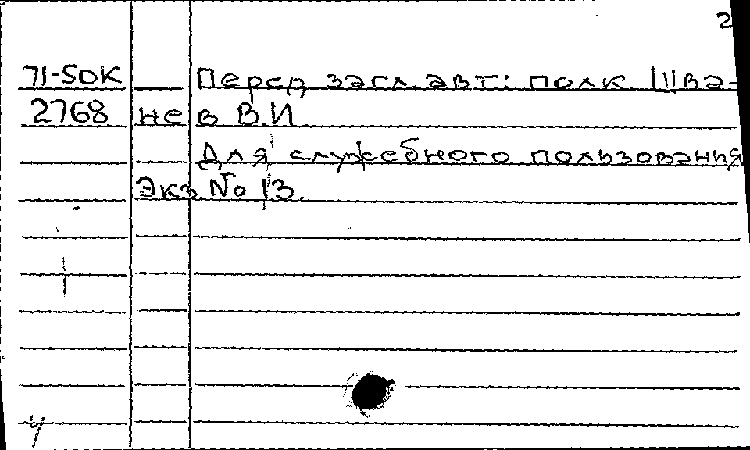 2
71-50К Перед загл. авт: полк Шва-
2768 нев В.И
Для служебного пользования
Экз No 13.
4